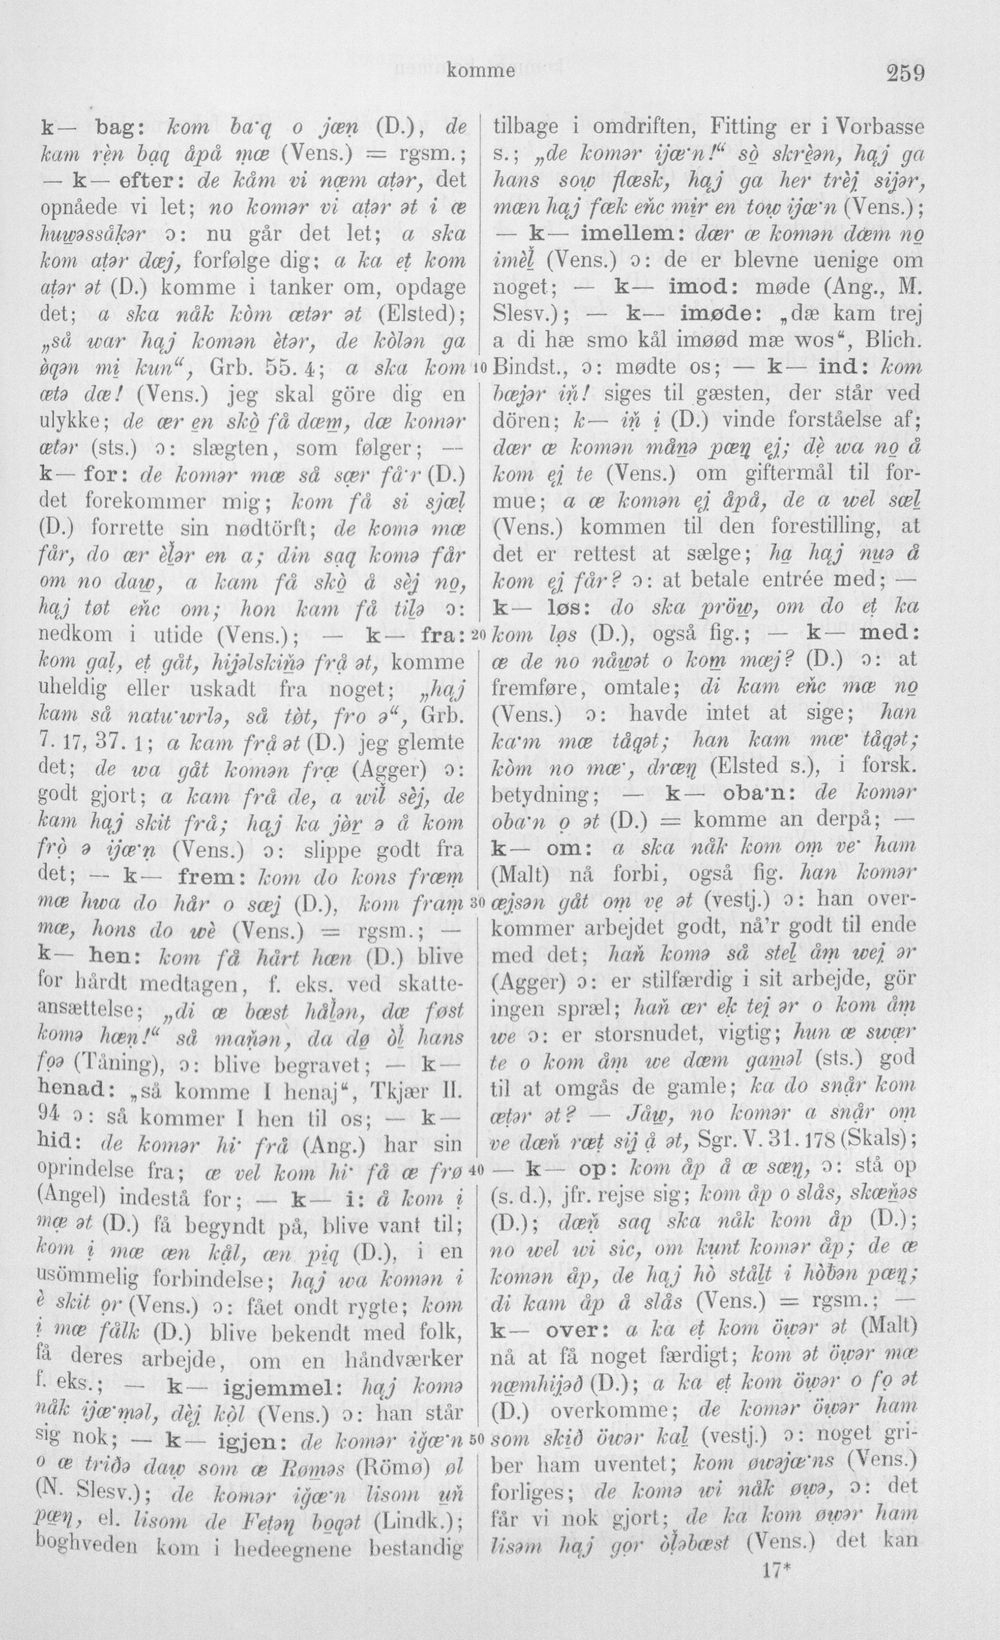 komme
259
k— bag: kom ba·q o jæn (D.), de
kam rèn bạq åpå mæ (Vens.) = rgsm.;
— k— efter: de kåm vi næm atər, det
opnåede vi let; no komər vi atər ət i æ
huwəssåkər ɔ: nu går det let; a ska
kom atər dæj, forfølge dig; a ka et kom
atər ət (D.) komme i tanker om, opdage
det; a ska nåk kòm ætər ət (Elsted);
„så war hạj komən ètər, de kòlən ga
òqən mi kun“, Grb. 55. 4; a ska kom
ætə dæ! (Vens.) jeg skal göre dig en
ulykke; de ær en skò få dæm, dæ komər
ætər (sts.) ɔ: slægten, som følger; —
k— for: de komər mæ så sær få·r (D.)
det forekommer mig; kom få si sjæl
(D.) forrette sin nødtörft; de komə mæ
får, do ær èlər en a; din sạq komə får
om no daw, a kam få skò å sèj no,
hạj tøt eńc om; hon kam få tilə ɔ:
nedkom i utide (Vens.); — k— fra:
kom gal, et gåt, hijəlskińə frå ət, komme
uheldig eller uskadt fra noget; „hạj
kam så natu·wrlə, så tòt, fro ə“, Grb.
7. 17, 37. 1; a kam frå ət (D.) jeg glemte
det; de wa gåt komən fræ (Agger) ɔ:
godt gjort; a kam frå de, a wil sèj, de
kam hạj skit frå; hạj ka jòr ə å kom
frò ə ijæ·n (Vens.) ɔ: slippe godt fra
det; — k— frem: kom do kons fræm
mæ hwa do hår o sæj (D.), kom fram
mæ, hons do wè (Vens.) = rgsm.; —
k— hen: kom få hårt hæn (D.) blive
for hårdt medtagen, f. eks. ved skatte-
ansættelse; „di æ bæst hålən, dæ føst
komə hæn!“ så mańən, da dø òl hans
foə (Tåning), ɔ: blive begravet; — k—
henad: „så komme I henaj“, Tkjær II.
94 ɔ: så kommer I hen til os; — k—
hid: de komər hi· frå (Ang.) har sin
oprindelse fra; æ vel kom hi· få æ frø
(Angel) indestå for; — k— i: å kom i
mæ ət (D.) få begyndt på, blive vant til;
kom i mæ æn kål, æn piq (D.), i en
usömmelig forbindelse; hạj wa komən i
è skit or (Vens.) ɔ: fået ondt rygte; kom
i mæ fålk (D.) blive bekendt med folk,
få deres arbejde, om en håndværker
f. eks.; — k— igjemmel: hạj komə
nåk ijæ·məl, dèj kòl (Vens.) ɔ: han står
sig nok; — k— igjen: de komər iğæ·n
o æ triðə daw som æ Roməs (Römø) øl
(N. Slesv.); de komər iğæ·n lisom uń
pæn, el. lisom de Fetəŋ boqət (Lindk.);
boghveden kom i hedeegnene bestandig
tilbage i omdriften, Fitting er i Vorbasse
s.; „de komər ijæ·n!“ sò skrèən, hạj ga
hans sow flæsk, hạj ga her trèj sijər,
mæn hạj fæk eńc mir en tow ijæ·n (Vens.);
— k— imellem: dær æ komən dæm no
imèl (Vens.) ɔ: de er blevne uenige om
noget; — k— imod: møde (Ang., M.
Slesv.); — k— imøde: „dæ kam trej
a di hæ smo kål imøød mæ wos“, Blich.
10 Bindst., ɔ: mødte os; — k— ind: kom
bæjər iń! siges til gæsten, der står ved
dören; k— iń i (D.) vinde forståelse af;
dær æ komən månə pæŋ ej; dè wa no å
kom ej te (Vens.) om giftermål til for-
mue; a æ komən ej åpå, de a wel sæl
(Vens.) kommen til den forestilling, at
det er rettest at sælge; ha hạj nuə å
kom ej får? ɔ: at betale entrée med; —
k— løs: do ska pröw, om do et ka
20 kom løs (D.), også fig.; — k— med:
æ de no nåwət o kom mæj? (D.) ɔ: at
fremføre, omtale; di kam eńc mæ no
(Vens.) ɔ: havde intet at sige; han
ka·m mæ tåqət; han kam mæ· tåqət;
kòm no mæ·, dræŋ (Elsted s.), i forsk.
betydning; — k— oba·n: de komər
oba·n o ət (D.) = komme an derpå; —
k— om: a ska nåk kom om ve· ham
(Malt) nå forbi, også fig. han komər
30 æjsən gåt om ve ət (vestj.) ɔ: han over-
kommer arbejdet godt, nå'r godt til ende
med det; hań komə så stel åm wej ər
(Agger) ɔ: er stilfærdig i sit arbejde, gör
ingen spræl; hań ær ek tej ər o kom åm
we ɔ: er storsnudet, vigtig; hun æ swær
te o kom åm we dæm gaməl (sts.) god
til at omgås de gamle; ka do snår kom
ætər ət? — Jåw, no komər a snår om
ve dæń ræt sij å ət, Sgr. V. 31. 178 (Skals);
40 — k— op: kom åp å æ sæŋ, ɔ: stå op
(s. d.), jfr. rejse sig; kom åp o slås, skæńəs
(D.); dæń saq ska nåk kom åp (D.);
no wel wi sic, om kunt komər åp; de æ
komən åp, de hạj hò stålt i hòbən pæŋ;
di kam åp å slås (Vens.) = rgsm.; —
k— over: a ka et kom öwər ət (Malt)
nå at få noget færdigt; kom ət öwər mæ
næmhijəð (D.); a ka et kom öwər o fo ət
(D.) overkomme; de komər öwər ham
50 som skið öwər kal (vestj.) ɔ: noget gri-
ber ham uventet; kom øwəjæ·ns (Vens.)
forliges; de komə wi nåk øwə, ɔ: det
får vi nok gjort; de ka kom øwər ham
lisəm hạj gor òləbæst (Vens.) det kan
17*